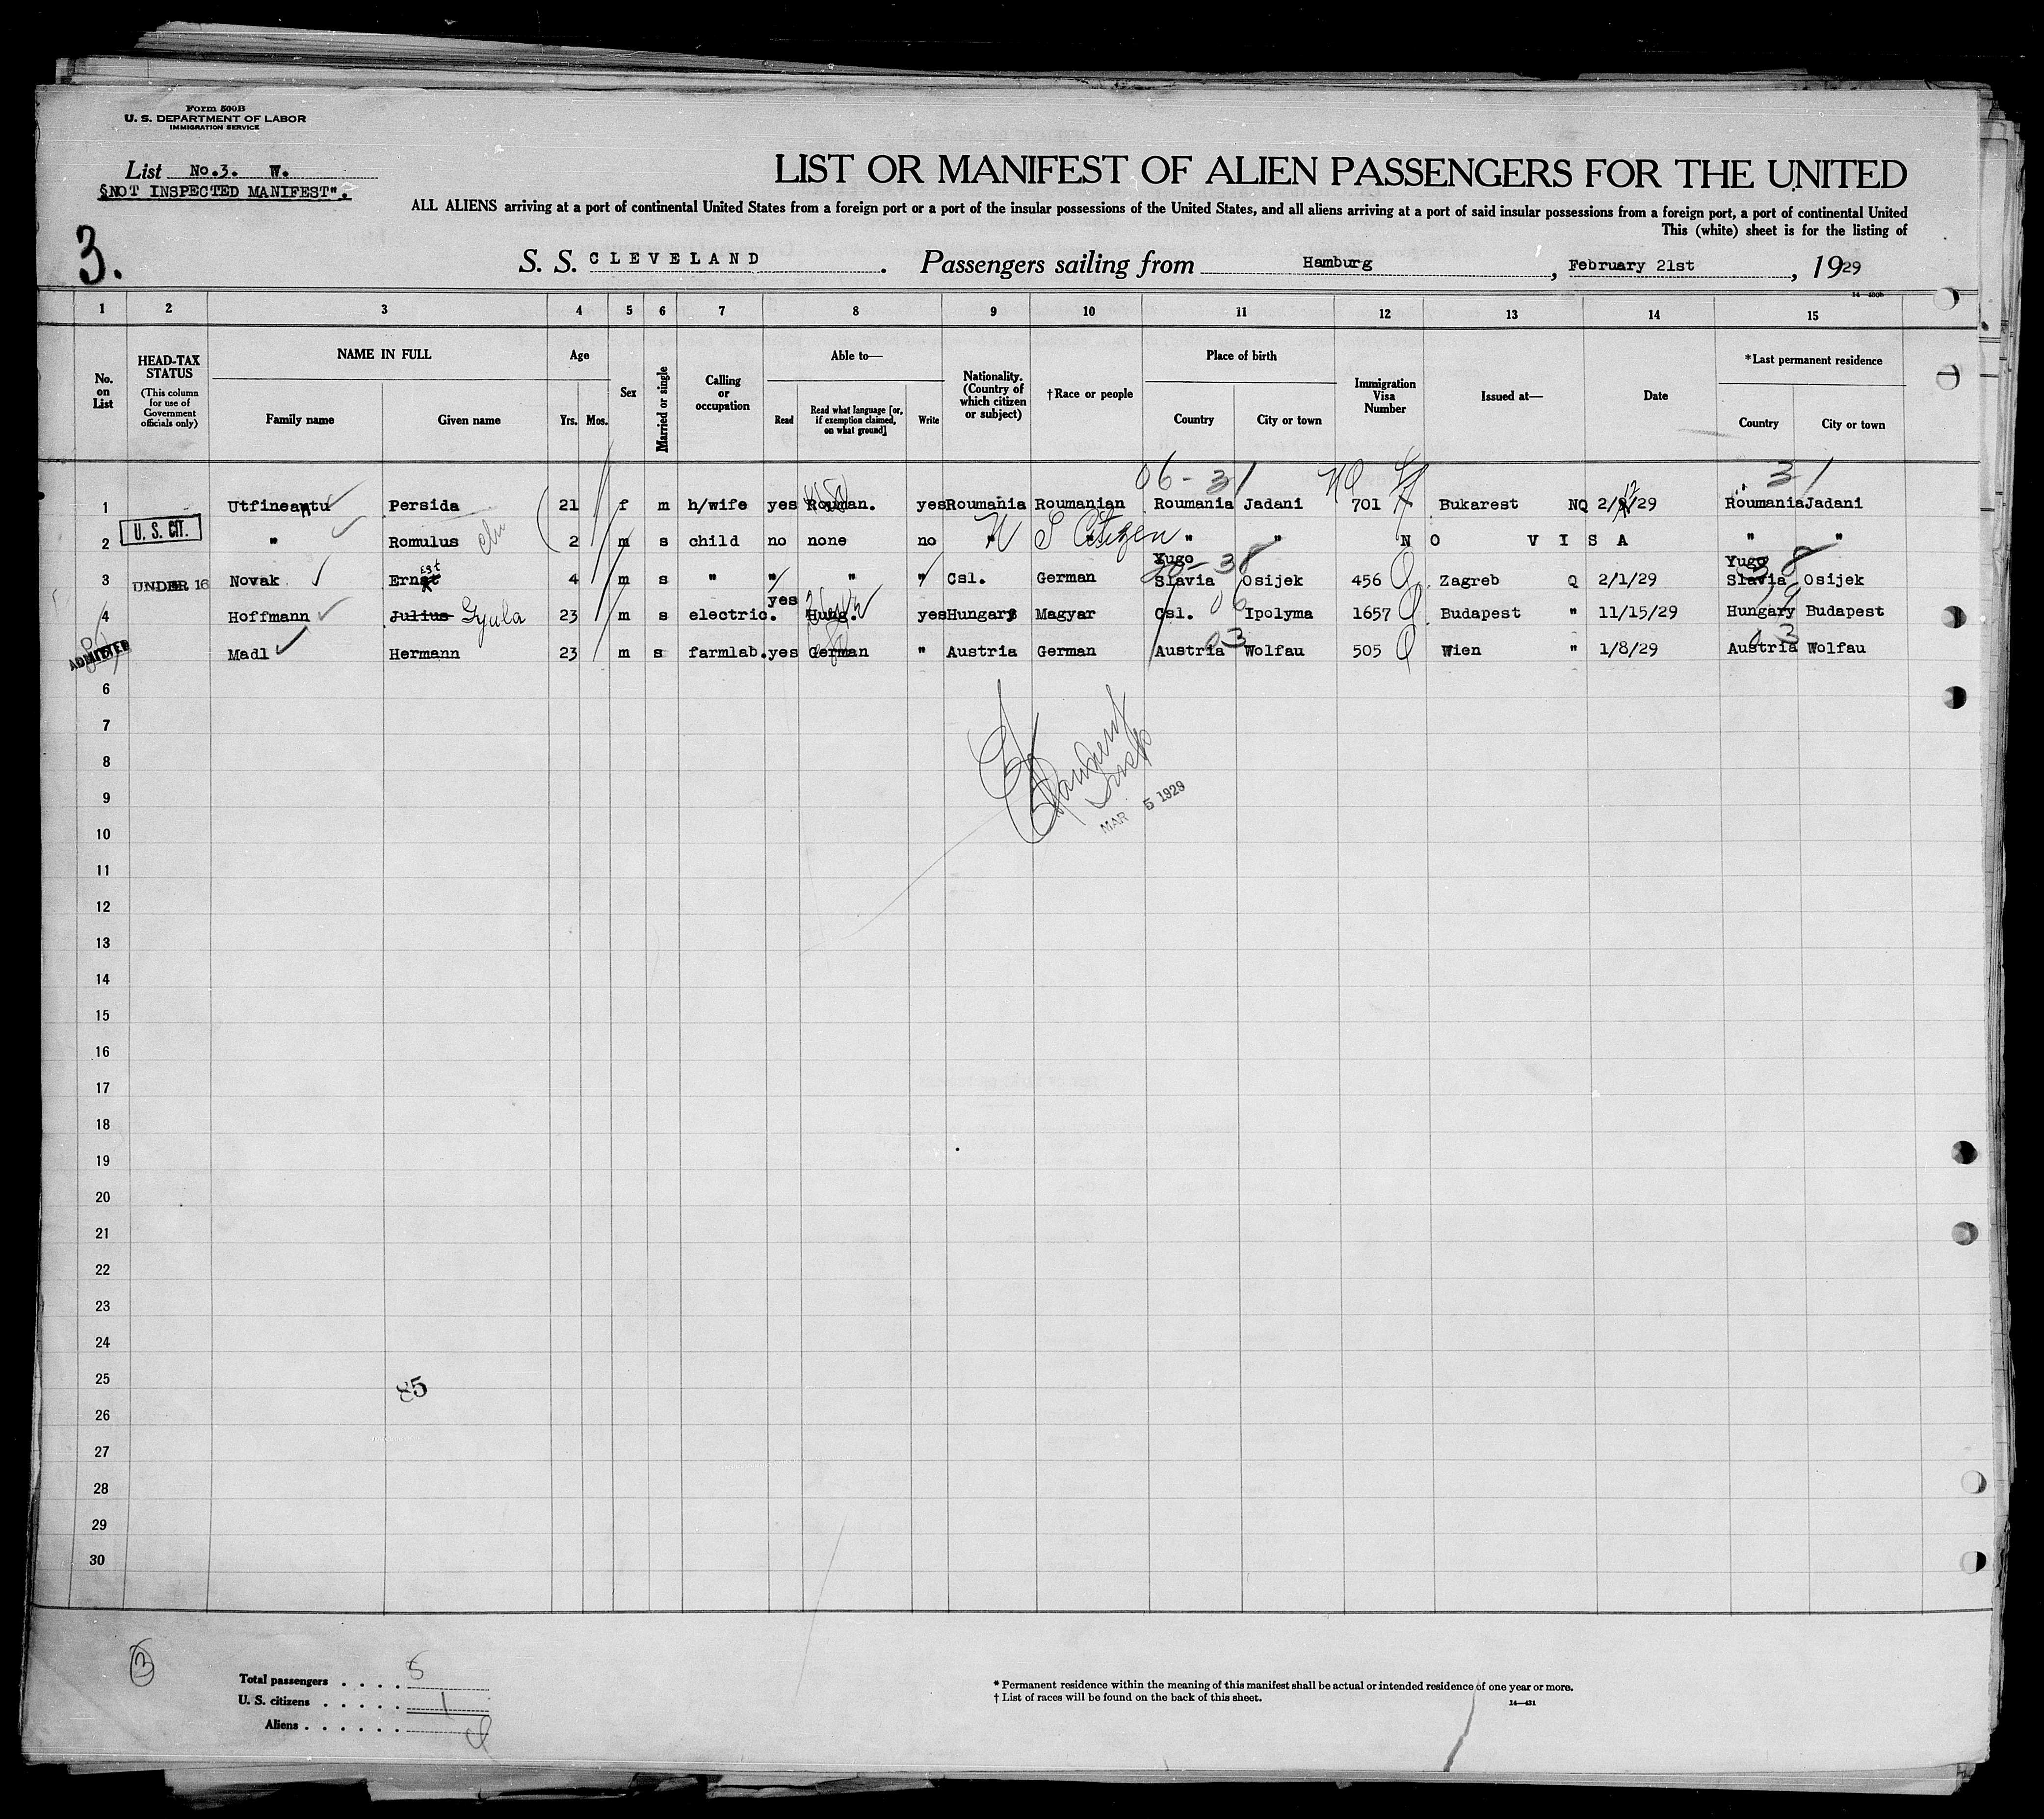 Form 500B
U. S. DEPARTMENT OF LABOR
IMMIGRATION SERVICE
List No.3. W.
§NOT INSPECTED MANIFEST".
3.
LIST OR MANIFEST OF ALIEN PASSENGERS FOR THE UNITED
ALL ALIENS arriving at a port of continental United States from a foreign port or a port of the insular possessions of the United States, and all aliens arriving at a port of said insular possessions from a foreign port, a port of continental United
This (white) sheet is for the listing of
S. S. CLEVELAND. Passengers sailing from Hamburg, February 21st, 1929
1 2 3 4 5 6 7 8 9 10 11 12 13 14 15
No. on List
HEAD-TAX STATUS
(This column for use of Government officials only)
NAME IN FULL
Family name Given name
Age
Yrs. Mos.
Sex
Married or single
Calling or occupation
Able to—
Read
Read what language [or, if exemption claimed, on what ground]
Write
Nationality. (Country of which citizen or subject)
†Race or people
Place of birth
Country City or town
Immigration Visa Number
Issued at—
Date
*Last permanent residence
Country City or town
06-31 NQ 31
1 Utfineantu Persida 21 f m h/wife yes Rouman. yes Roumania Roumanian Roumania Jadani 701 Bukarest NQ 2/12/29 Roumania Jadani
U. S. CIT.
2 " Romulus 2 m s child no none no " U S Citizen " " NO VISA " "
UNDER 16
3 Novak Ernst Est 4 m s " " " " Csl. German Yugo Slavia 38 Osijek 456 Q Zagreb Q 2/1/29 Yugo Slavia 38 Osijek
4 Hoffmann Julius Gyula 23 m s electric. yes Hung. yes Hungary Magyar Csl. 06 Ipolyma 1657 Q Budapest " 11/15/29 Hungary 19 Budapest
ADMITTED
Madl Hermann 23 m s farmlab. yes German " Austria German Austria 03 Wolfau 505 Q Wien " 1/8/29 Austria 03 Wolfau
6
7
8
MAR 5 1929
9
10
11
12
13
14
15
16
17
18
19
20
21
22
23
24
25
85
26
27
28
29
30
3
Total passengers . . . . 5
U. S. citizens . . . . . 1
Aliens . . . . . . 4
* Permanent residence within the meaning of this manifest shall be actual or intended residence of one year or more.
† List of races will be found on the back of this sheet.
14—431